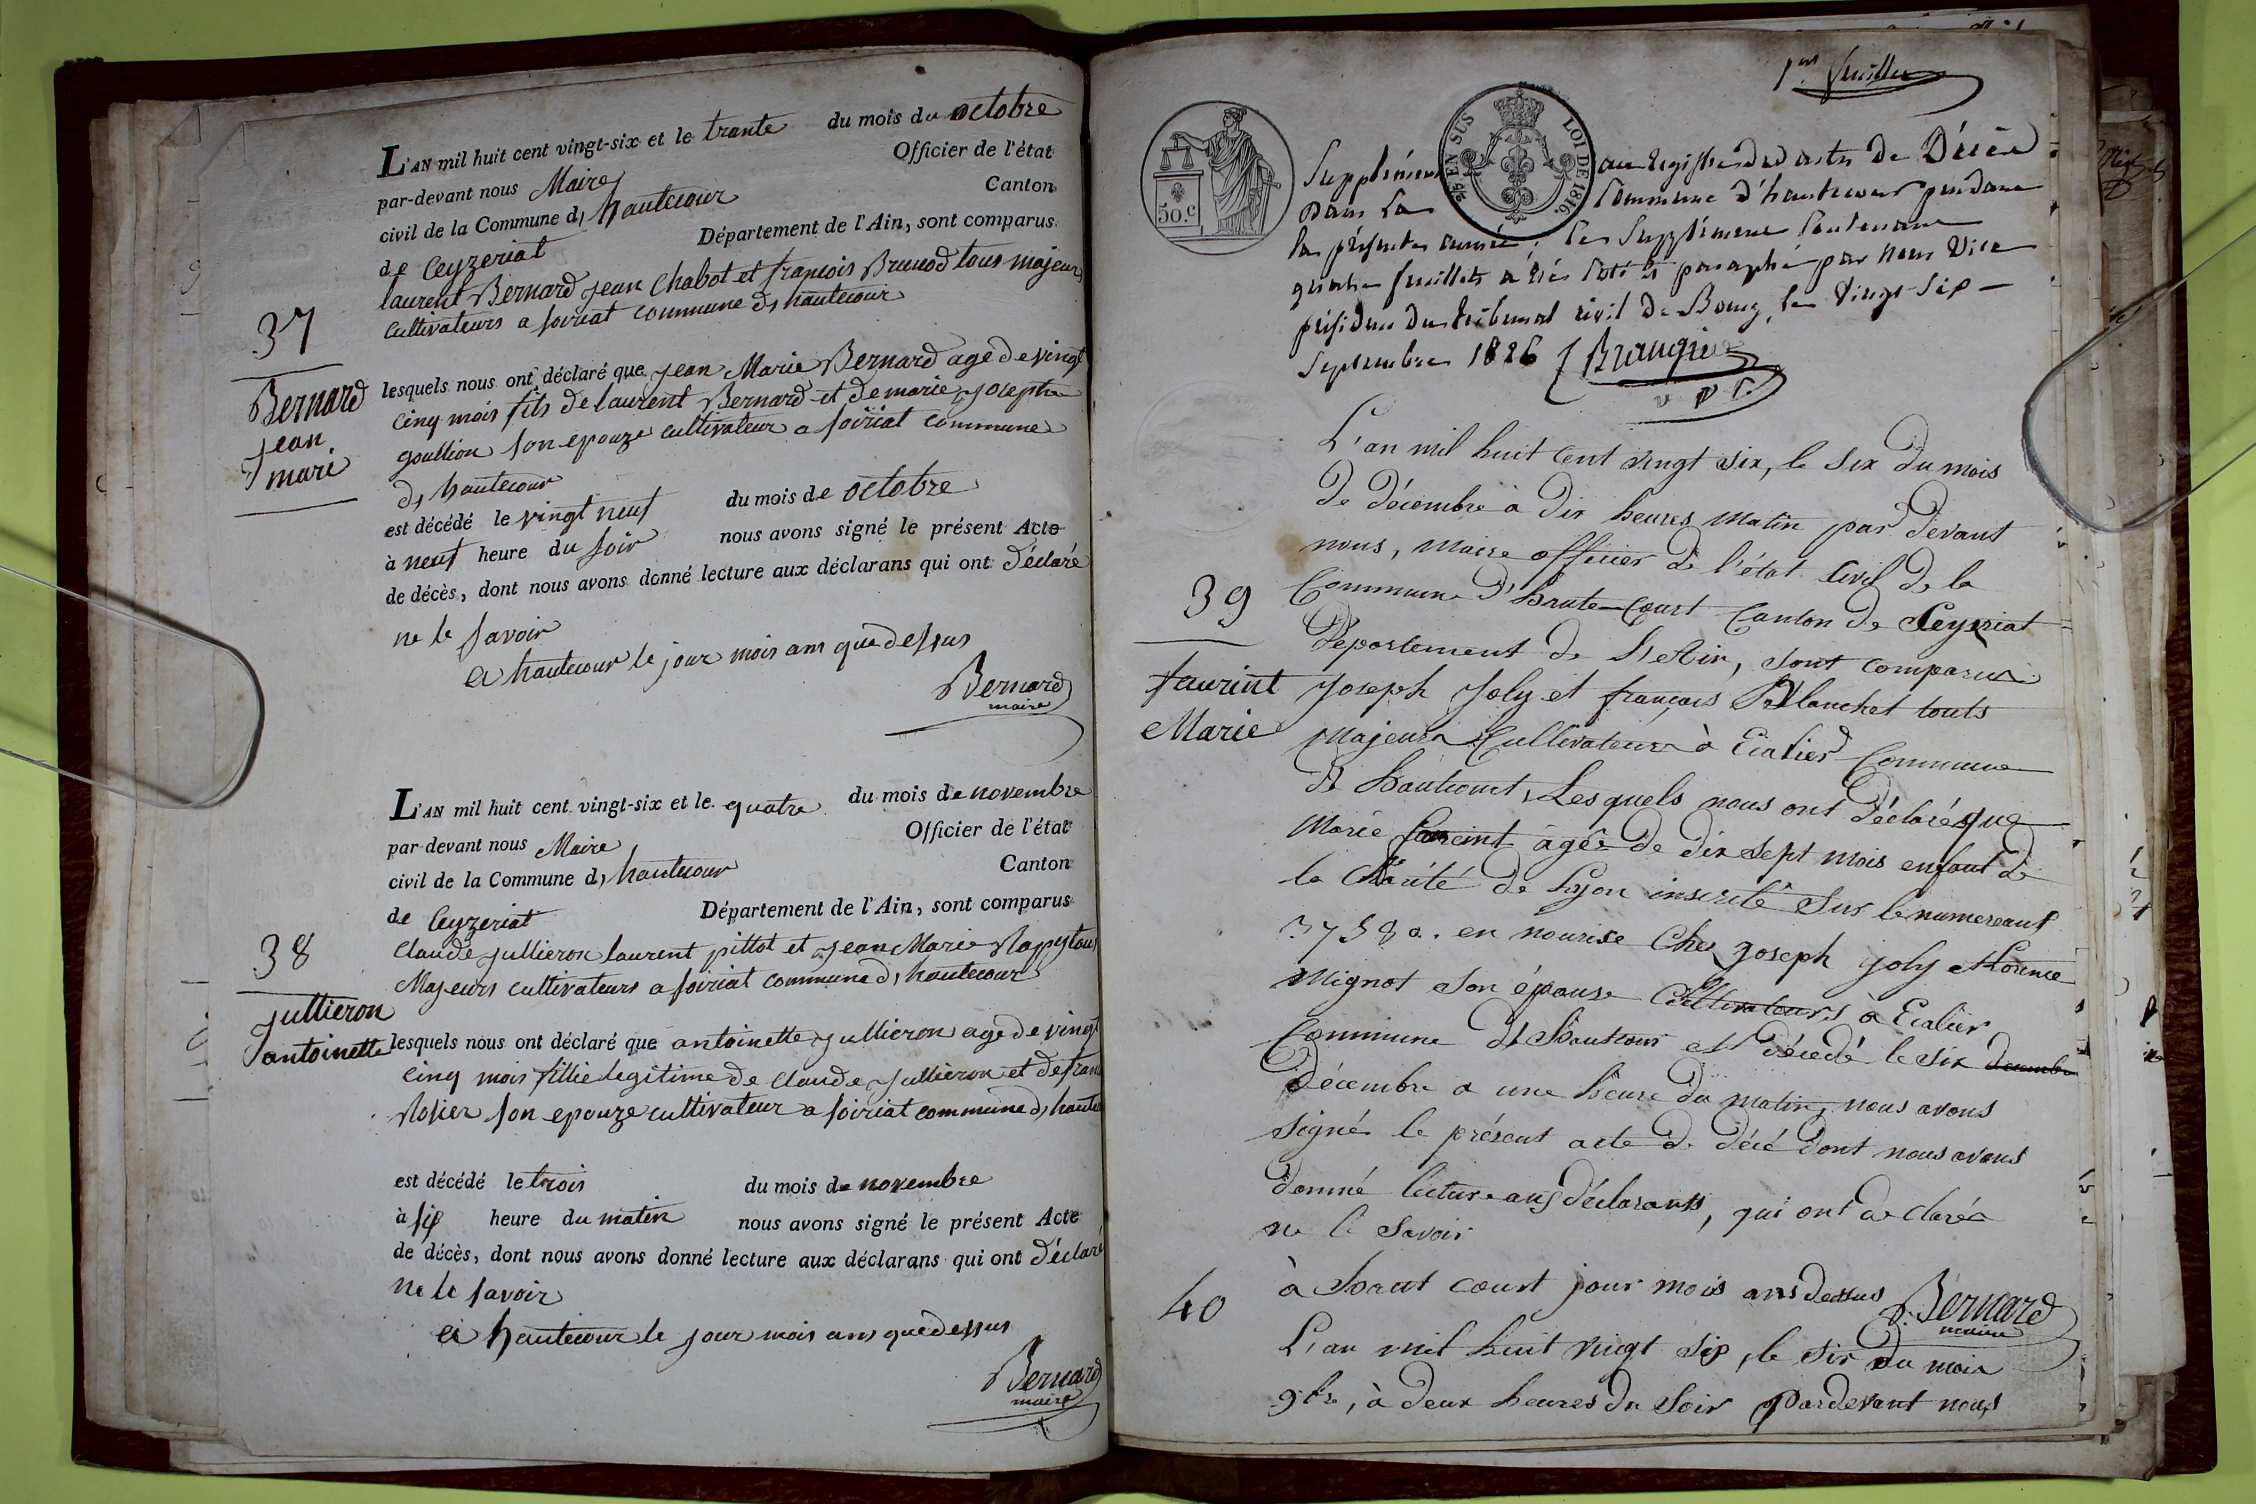 L'AN mil huit cent vingt-six et le trante du mois du octobre
par-devant nous Maire Officier de l'état
civil de la Commune d, hautecour Canton
de Ceyzeriat Département de l'Ain, sont comparus
laurent Bernard jean Chabot et francois Brunod tous majeurs
cultivateurs a soiriat commune d, hautecour
37
Bernard
jean
mari
lesquels nous ont déclaré que jean Marie Bernard age de vingt
cinq mois fils de laurent Bernard et de marie josephe
goullion son epouze cultivateur a soiriat commune
d, hautecour
est décédé le vingt neuf du mois de octobre
à neuf heure du soir nous avons signé le présent Acte
de décès, dont nous avons donné lecture aux déclarans qui ont déclaré
ne le savoir
a hautecour le jour mois ans que dessus
Bernard
maire
L'AN mil huit cent vingt-six et le quatre du mois de novembre
par-devant nous Maire Officier de l'état
civil de la Commune d, hautecour Canton
de Ceyzeriat Département de l'Ain, sont comparus
Claude jullieron laurent pittot et jean Marie tous
Majeurs cultivateurs a soiriat commune d, hautecour
38
jullieron
antoinette
lesquels nous ont déclaré que antoinette jullieron age de vingt
cinq mois fillie legitime de Claude jullieron et de fran
son epouze cultivateur a soiriat commune d, haute
est décédé le trois du mois de novembre
à six heure du matin nous avons signé le présent Acte
de décès, dont nous avons donné lecture aux déclarans qui ont déclaré
ne le savoir
a hautecour le jour mois ans que dessus
Bernard
maire
1er feuillet
50.c
EN SUS LOI DE 1816.
Supplément au registre des actes de Décès
dans la Commune d'hautecour pendant
la présente année; le Supplément Contenant
quatre feuillets a été Coté et paraphé par Nous Vice
président du tribunal civil de Bourg, le Vingt Sept
Septembre 1826
L'an mil huit cent vingt six, le six du mois
de décembre à dix heures matin par devant
nous, maire officier de l'état civil de la
39
Commune d'haute-court Canton de Ceyzeriat
Département de l'Ain, sont comparus
faurint
Marie
joseph joly et françois Blanchet touts
Majeurs Cultivateurs à Ecalier Commune
de hautcourt, Lesquels nous ont déclaré que
Marie agée de dix sept mois enfant de
la Charité de Lyon inscrite sur le numereaut
en nourice Chez joseph joly et
Mignot son épouse Cultivateurs à Ecalier
Commune de hautcour est décedé le six decembre
décembre a une heure du matin, nous avons
signé le présent acte de décé dont nous avons
donné lecture aux déclarants, qui ont déclaré
ne le savoir
à haut court jour mois ans dessus
Bernard
maire
40
L'an mil huit vingt six, le six du mois
9bre, à deux heures du soir pardevant nous